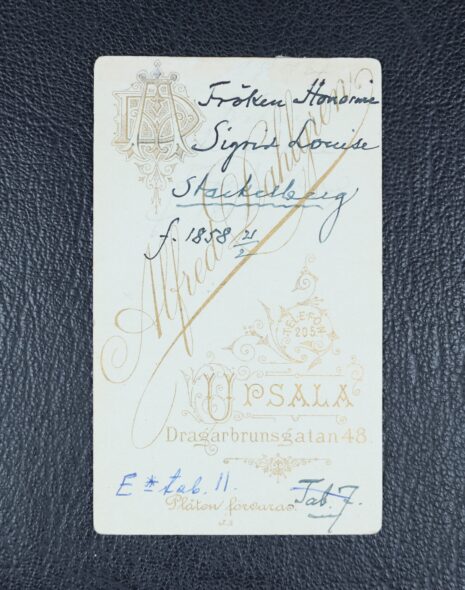 AD
Fröken Honorine
Sigrid Louise
Stackelberg
f. 1858 21/2
Alfred Dahlgren
TELEFON
205
UPSALA
Dragarbrunsgatan 48.
E* tab. 11.
Tab. 7.
Plåten förvaras.